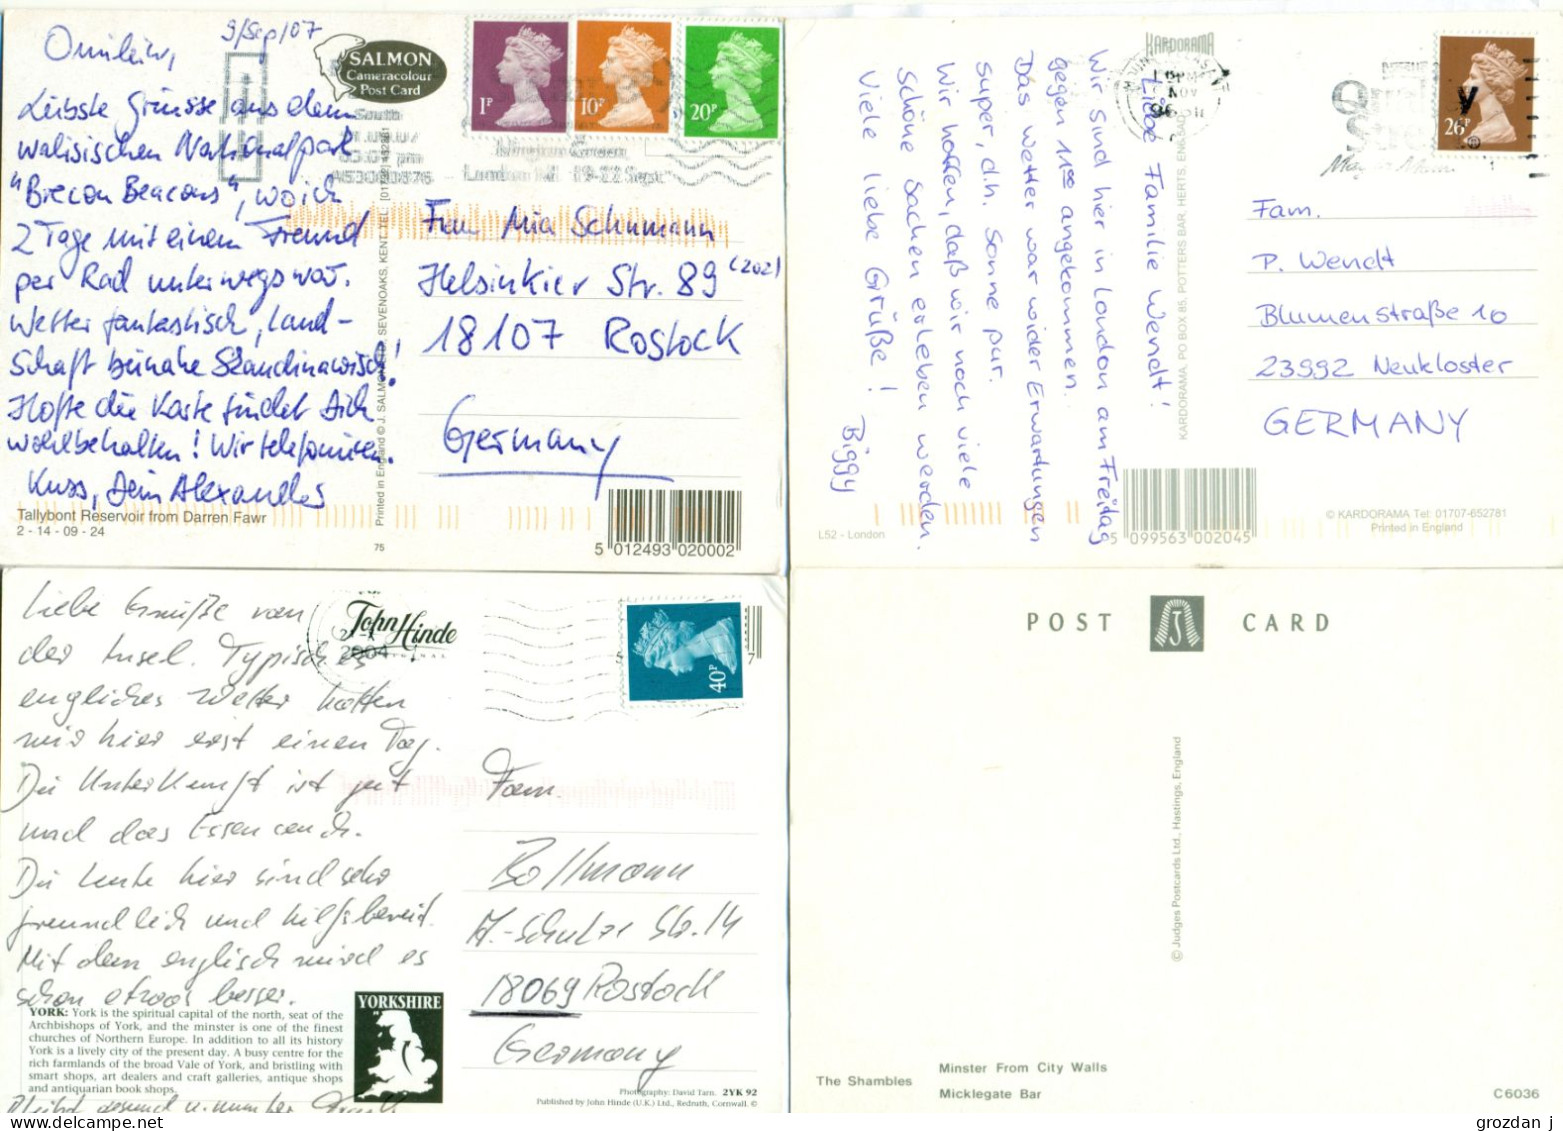 9/Sep/07
Omilein,
Liebste Grüsse aus dem
walisischen Nationalpark
"Brecon Beacons", wo ich
2 Tage mit einem Freund
per Rad unterwegs war.
Wetter fantastisch, Land-
schaft beinahe Skandinawisch!
Hoffe die Karte findet Dich
wohlbehalten! Wir telefonieren.
Kuss, Dein Alexander
Tallybont Reservoir from Darren Fawr
2 - 14 - 09 - 24
SALMON
Cameracolour
Post Card
Printed in England © J. SALMON LTD., SEVENOAKS, KENT. TEL.
75
1P
10P
20P
South
London
19-22 Sept
Frau Mia Schumann
Helsinkier Str. 89 (202)
18107 Rostock
Germany
5 012493 020002
KARDORAMA
Liebe Familie Wendt!
Wir sind hier in London am Freitag
gegen 11:00 angekommen.
Das Wetter war wider Erwartungen
super, d.h. Sonne pur.
Wir hoffen, daß wir noch viele
schöne Sachen erleben werden.
Viele liebe Grüße!
Biggy
L52 - London
KARDORAMA, PO BOX 85, POTTERS BAR, HERTS, ENGLAND
NOV
26P
Fam.
P. Wendt
Blumenstraße 10
23992 Neukloster
GERMANY
5 099563 002045
© KARDORAMA Tel: 01707-652781
Printed in England
Liebe Grüße von
der Insel. Typisches
englisches Wetter hatten
wir hier erst einen Tag.
Die Unterkunft ist gut
und das Essen auch.
Die Leute hier sind sehr
freundlich und hilfsbereit.
Mit dem englisch wird es
schon etwas besser.
John Hinde
ORIGINAL
2004
40P
7
Fam.
Bollmann
A.-Schulze Str. 14
18069 Rostock
Germany
YORK: York is the spiritual capital of the north, seat of the
Archbishops of York, and the minster is one of the finest
churches of Northern Europe. In addition to all its history
York is a lively city of the present day. A busy centre for the
rich farmlands of the broad Vale of York, and bristling with
smart shops, art dealers and craft galleries, antique shops
and antiquarian book shops.
YORKSHIRE
Photography: David Tarn. 2YK 92
Published by John Hinde (U.K.) Ltd., Redruth, Cornwall. ©
POST CARD
J
© Judges Postcards Ltd., Hastings, England
The Shambles
Minster From City Walls
Micklegate Bar
C6036
grozdan j